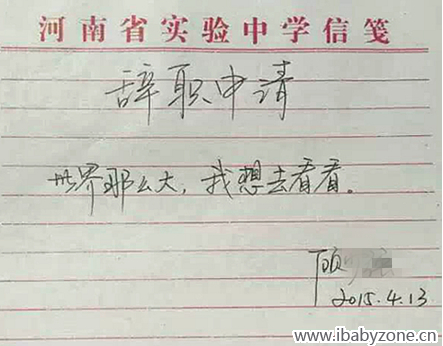 河南省实验中学信笺
辞职申请
世界那么大，我想去看看。
顾
2015.4.13
www.ibabyzone.cn